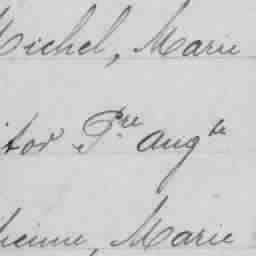 Michel, Marie
itor Pre Augte
ienne, Marie